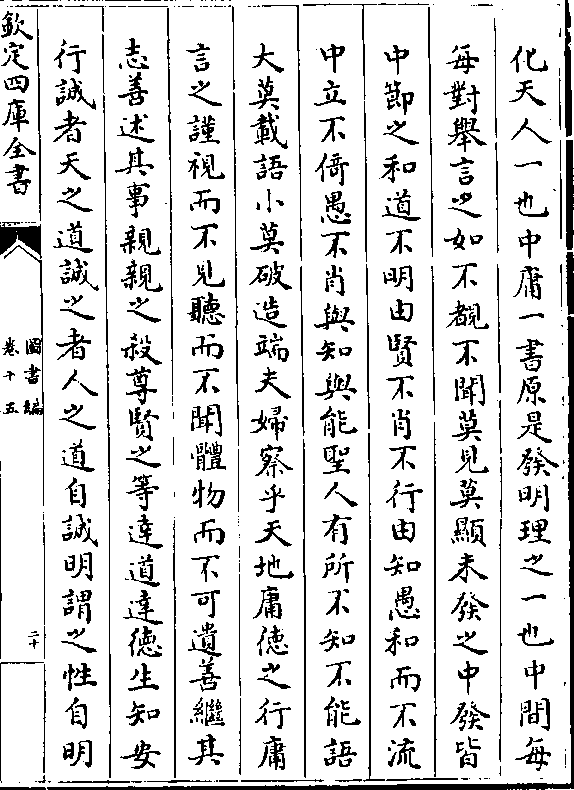 化天人一也中庸一書原是發明理之一也中間每
每對舉言之如不覩不聞莫見莫顯未發之中發皆
中節之和道不明由賢不肖不行由知愚和而不流
中立不倚愚不肖與知與能聖人有所不知不能語
大莫載語小莫破造端夫婦察乎天地庸徳之行庸
言之謹視而不見聽而不聞體物而不可遺善繼其
志善述其事親親之殺尊賢之等達道達徳生知安
行誠者天之道誠之者人之道自誠明謂之性自明
欽定四庫全書
圖書編
卷十五
二十